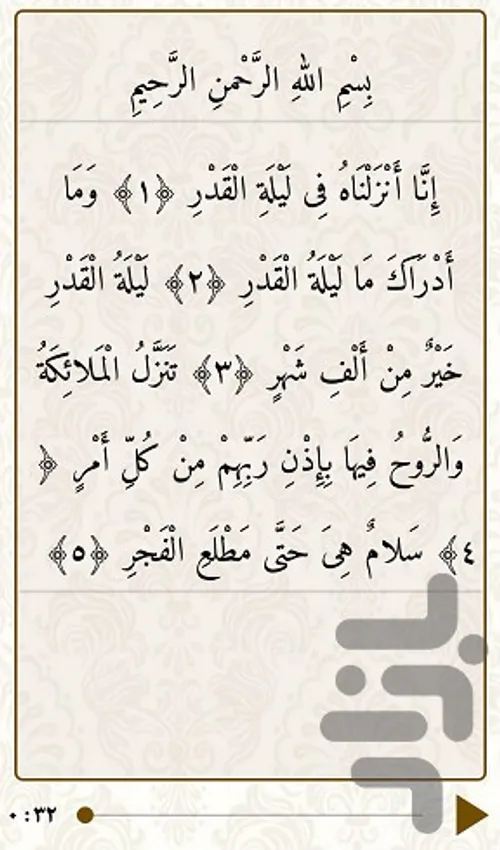 بِسْمِ اللهِ الرَّحْمنِ الرَّحِيمِ
إِنَّا أَنْزَلْنَاهُ فِى لَيْلَةِ الْقَدْرِ ﴿١﴾ وَمَا
أَدْرَاكَ مَا لَيْلَةُ الْقَدْرِ ﴿٢﴾ لَيْلَةُ الْقَدْرِ
خَيْرٌ مِنْ أَلْفِ شَهْرٍ ﴿٣﴾ تَنَزَّلُ الْمَلائِكَةُ
وَالرُّوحُ فِيهَا بِإِذْنِ رَبِّهِمْ مِنْ كُلِّ أَمْرٍ ﴿
٤﴾ سَلامٌ هِىَ حَتَّى مَطْلَعِ الْفَجْرِ ﴿٥﴾
بازار
۰:۳۲